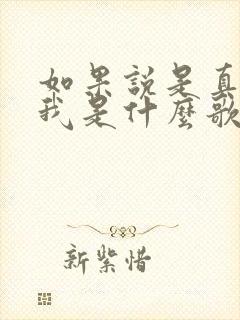 如果說是真
我是什麼歌
新紫惜